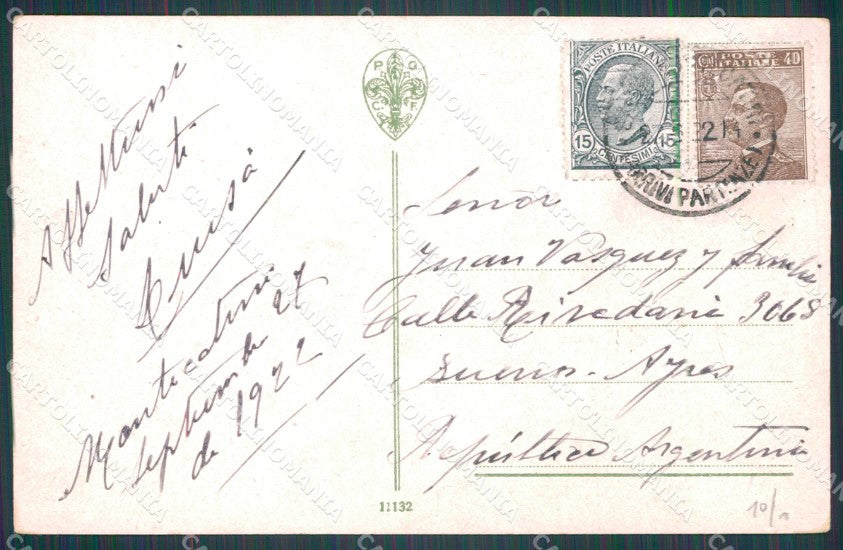 Affettuosi
saluti
Luisa
Montecatini
Septiembre 27
de 1922
P G
C F
11132
POSTE ITALIANE
15 15
CENTESIMI
POSTE
ITALIANE
40
22.14
ARRIVI PARTENZE
Señor
Juan Vasquez y familia
Calle Rivadavia 3068
Buenos-Ayres
República Argentina
10/
CARTOLINOMANIA